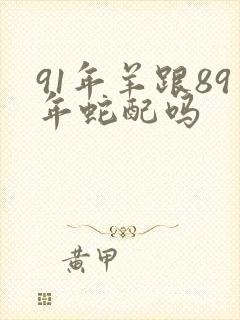 91年羊跟89
年蛇配吗
黄甲